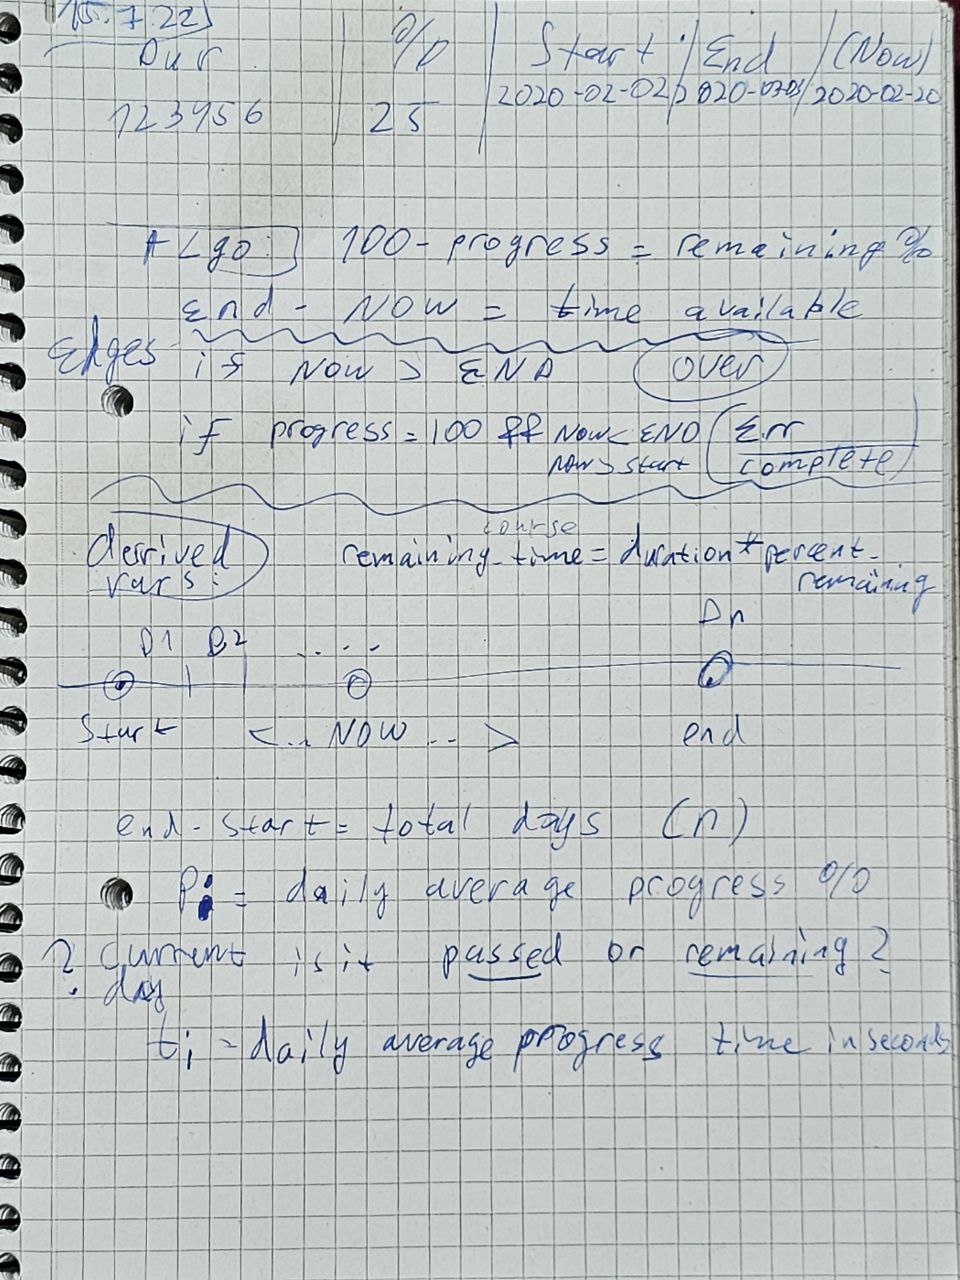 15.7.22
Dur | % | Start | End | (Now)
123456 | 25 | 2020-02-02 | 2020-03-03 | 2020-02-20
ALgo: 100 - progress = remaining %
End - NOW = time available
Edges if NOW > END (over)
if progress = 100 && NOW < END (Err
NOW > Start complete)
derrived course
vars: remaining_time = duration * percent_
remaining
D1 D2 .... Dn
Start <... NOW ... > end
end - start = total days (n)
Pi = daily average progress %
? Current is it passed or remaining ?
day
ti = daily average progress time in seconds